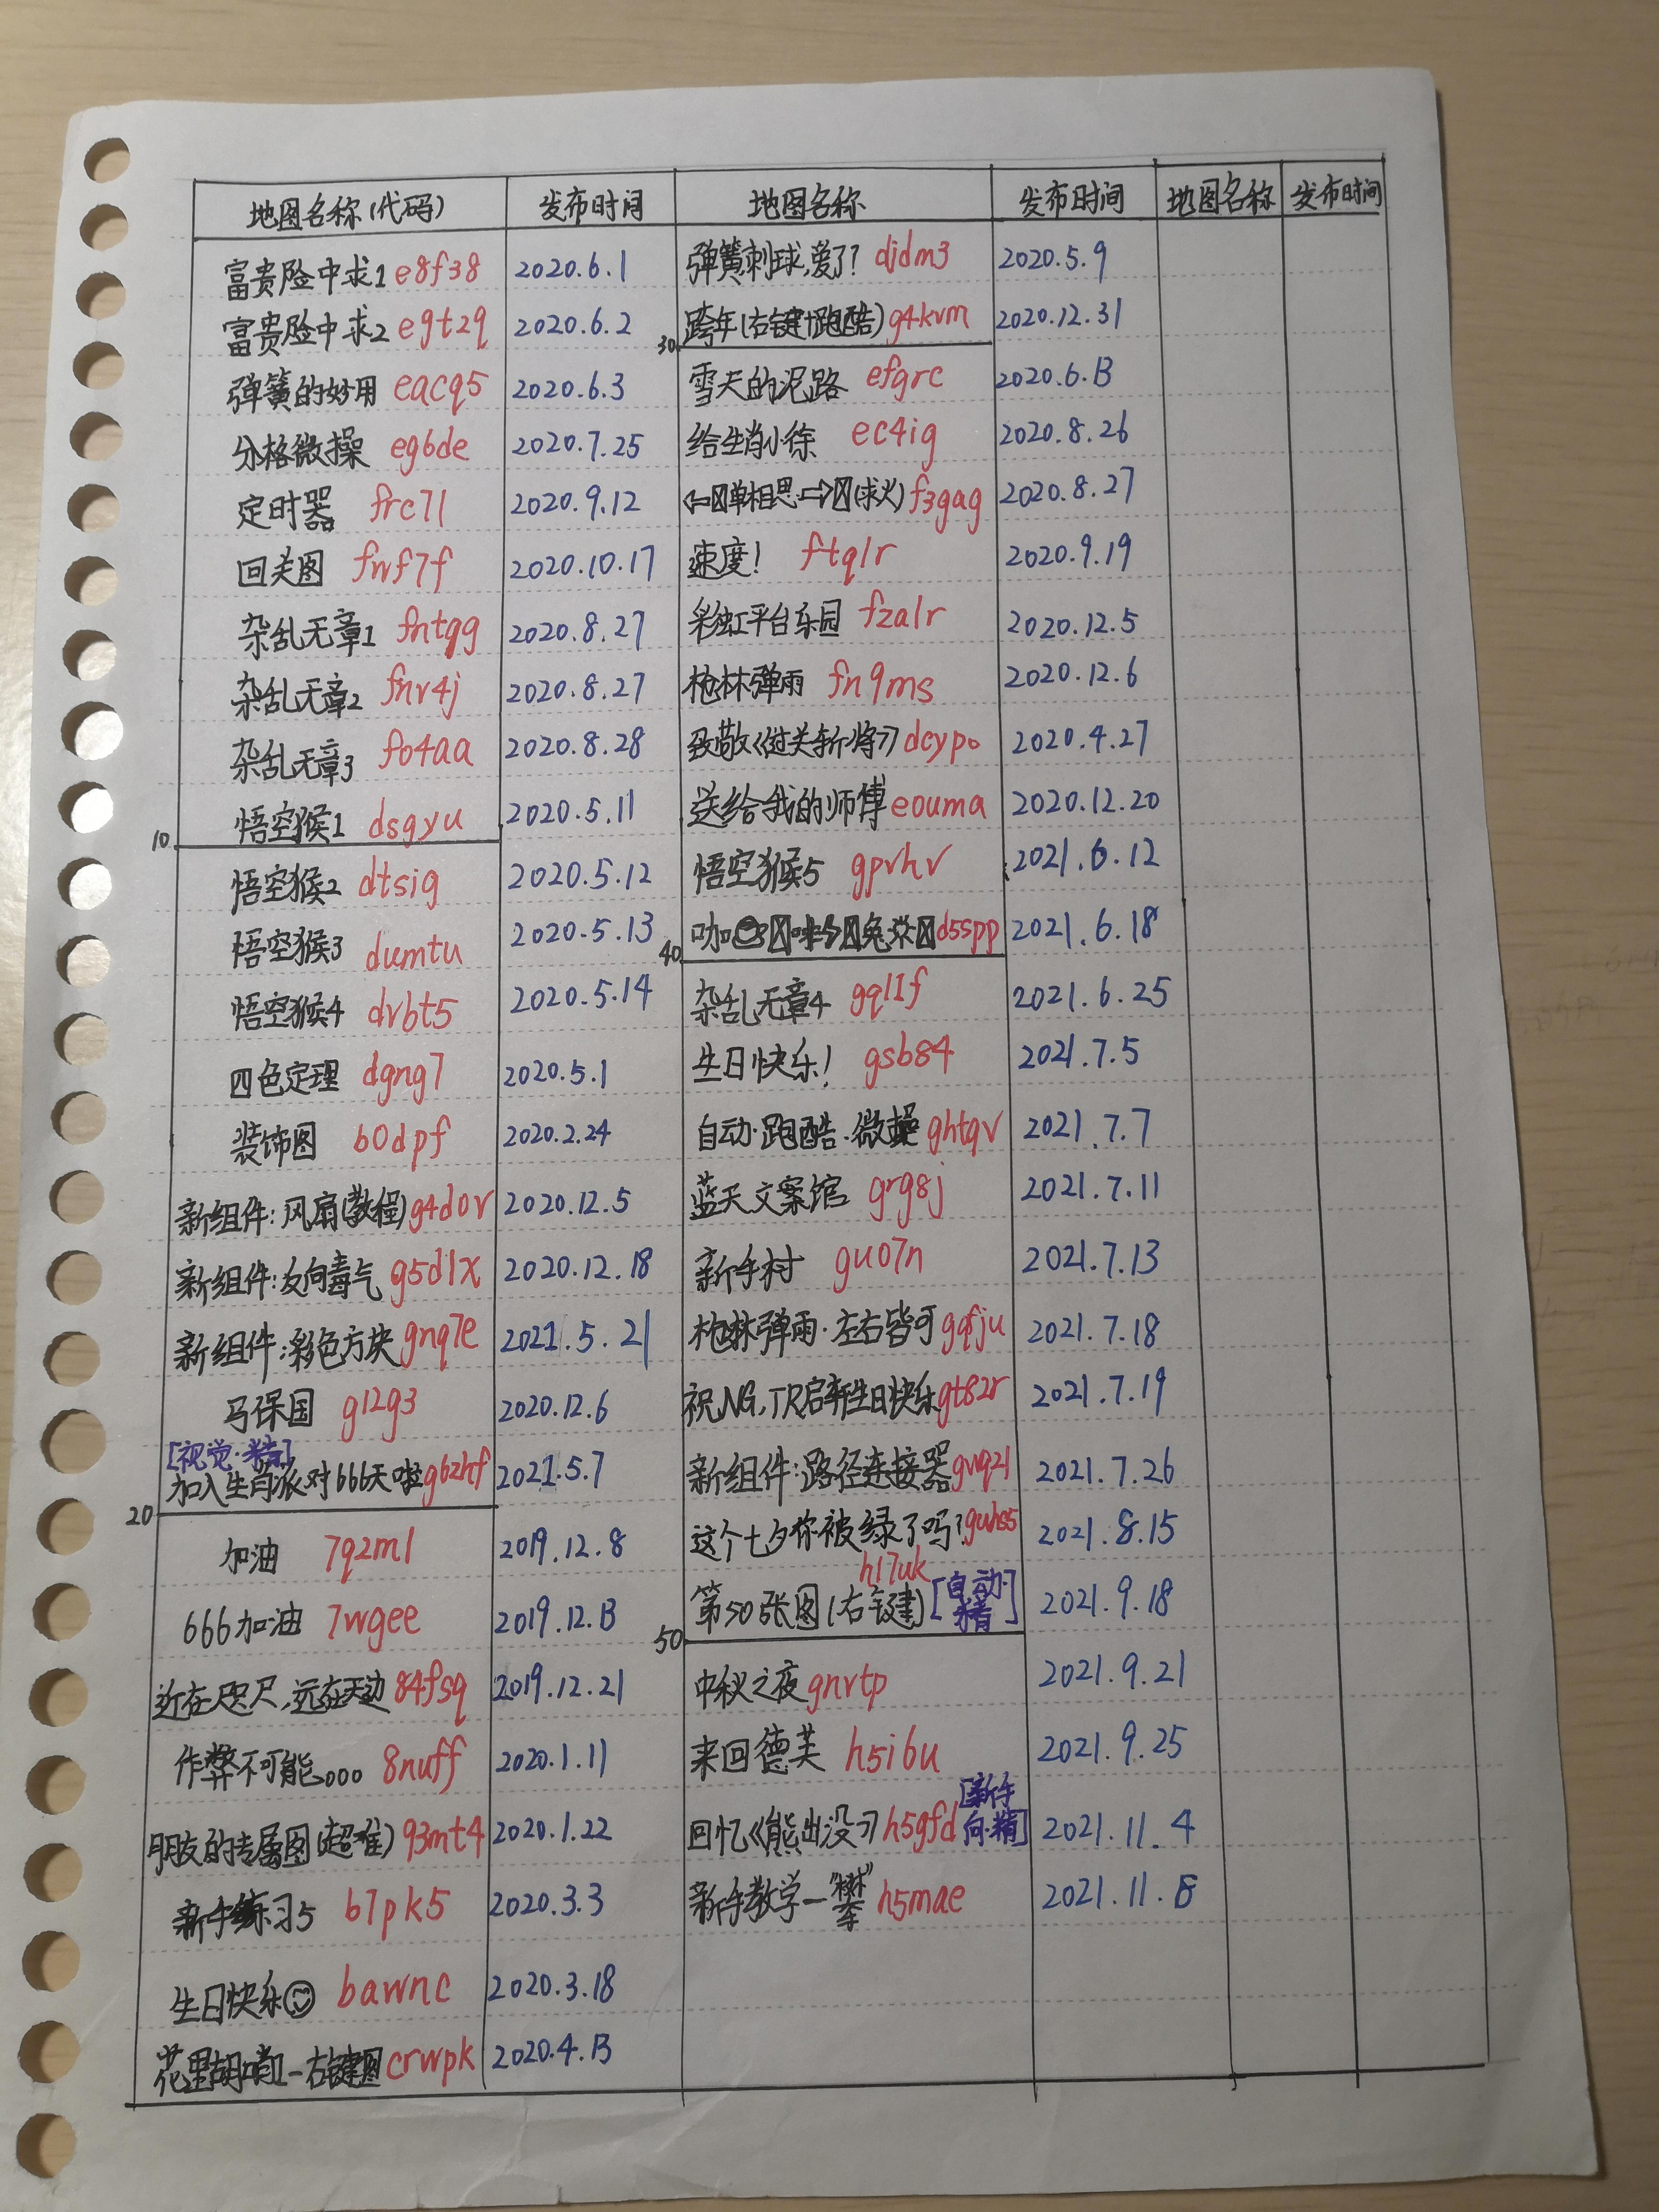 地图名称(代码) 发布时间 地图名称 发布时间 地图名称 发布时间
富贵险中求1 e8f38 2020.6.1
富贵险中求2 egtzq 2020.6.2
弹簧的妙用 eacq5 2020.6.3
分格微操 eg6de 2020.7.25
定时器 frc7l 2020.9.12
回关图 fwf7f 2020.10.17
杂乱无章1 fntqg 2020.8.27
杂乱无章2 fnr4j 2020.8.27
杂乱无章3 fo4aa 2020.8.28
悟空猴1 dsgyu 2020.5.11
10
悟空猴2 dtsig 2020.5.12
悟空猴3 dumtu 2020.5.13
悟空猴4 drbt5 2020.5.14
四色定理 dgng7 2020.5.1
装饰图 b0dpf 2020.2.24
新组件:风扇(教程) g4d0r 2020.12.5
新组件:反向毒气 g5d1x 2020.12.18
新组件:彩色方块 gnq7e 2021.5.21
马保国 g12g3 2020.12.6
[视觉·精]
加入生肖派对666天啦 g62hf 2021.5.7
20
加油 7q2m1 2019.12.8
666加油 7wgee 2019.12.13
近在咫尺,远在天边 84fsq 2019.12.21
作弊不可能。。。 8nuff 2020.1.11
朋友的专属图(超难) 93mt4 2020.1.22
新手练习5 b7pk5 2020.3.3
生日快乐 bawnc 2020.3.18
花里胡哨1-右键图 crwpk 2020.4.13
弹簧刺球,爱了? djdm3 2020.5.9
跨年(右键+跑酷) g4kvm 2020.12.31
30
雪天的泥路 efgrc 2020.6.13
给生肖小徐 ec4ig 2020.8.26
单相思 (求火) f3gag 2020.8.27
速度! ftqlr 2020.9.19
彩虹平台乐园 fzalr 2020.12.5
枪林弹雨 fn9ms 2020.12.6
致敬《过关斩将》 dcypo 2020.4.27
送给我的师傅 eouma 2020.12.20
悟空猴5 gprhr 2021.6.12
d5spp 2021.6.18
40
杂乱无章4 gqlIf 2021.6.25
生日快乐! gsb84 2021.7.5
自动·跑酷·微操 ghtqv 2021.7.7
蓝天文案馆 grg8j 2021.7.11
新手村 guo7n 2021.7.13
枪林弹雨·左右皆可 gqfju 2021.7.18
祝NG,TR,启轩生日快乐 gt82r 2021.7.19
新组件:路径连接器 gvq21 2021.7.26
这个七夕你被绿了吗? guhs5 2021.8.15
h17uk
第50张图(右键) [自动·精] 2021.9.18
50
中秋之夜 gnrtp 2021.9.21
来回德芙 h5i6u 2021.9.25
回忆《熊出没》 h5gfd [新手向·精] 2021.11.4
新手教学一“攀” h5mae 2021.11.